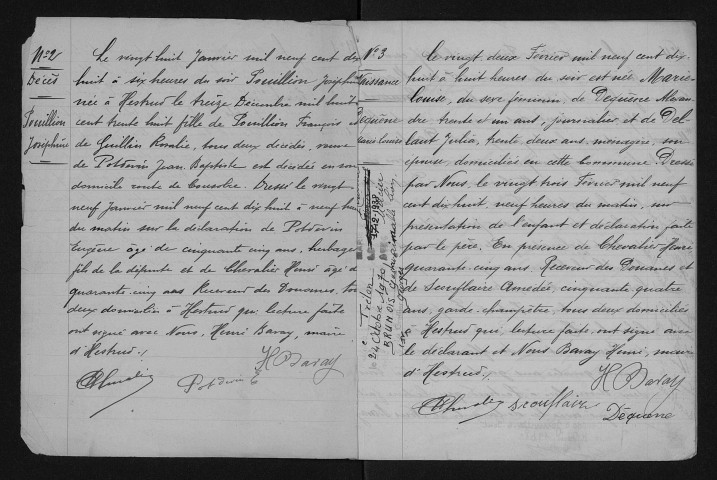 N° 2
Décès
Pouillion
Joséphine
Le vingt huit Janvier mil neuf cent dix
huit à six heures du soir Pouillion Joséphine
née à Hestrud le treize Décembre mil huit
cent trente huit fille de Pouillion François
de Guillin Rosalie, tous deux décédés, veuve
de Potdevin Jean Baptiste est décédée en son
domicile route de Cousolre. Dressé le vingt
neuf Janvier mil neuf cent dix huit à neuf heures
du matin sur la déclaration de Potdevin
Eugène âgé de cinquante cinq ans, herbager
fils de la défunte et de Chevalier Henri âgé de
quarante cinq ans Receveur des Douanes, tous
deux domiciliés à Hestrud qui, lecture faite
ont signé avec Nous, Henri Baray, maire
d'Hestrud ./.
H Baray
Potdevin E
N° 3
Naissance
Dequène
Marie Louise
Le vingt deux Février mil neuf cent dix-
huit à huit heures du soir est née Marie-
Louise, du sexe féminin, de Dequène Alexan-
dre trente et un ans, journalier et de Del-
baut Julia, trente deux ans, ménagère, son
épouse, domiciliés en cette commune. Dressé
par Nous, le vingt trois Février mil neuf
cent dix huit, neuf heures du matin, sur
présentation de l'enfant et déclaration faite
par le père. En présence de Chevalier Henri
quarante cinq ans, Receveur des Douanes et
de Scouflaire Amédée, cinquante quatre
ans, garde-champêtre, tous deux domiciliés
à Hestrud qui, lecture faite, ont signé avec
le déclarant et Nous Baray Henri, maire
d'Hestrud ./.
H Baray
Scouflaire
Dequène
Trélon
24 octobre 1970
BRUNOIS